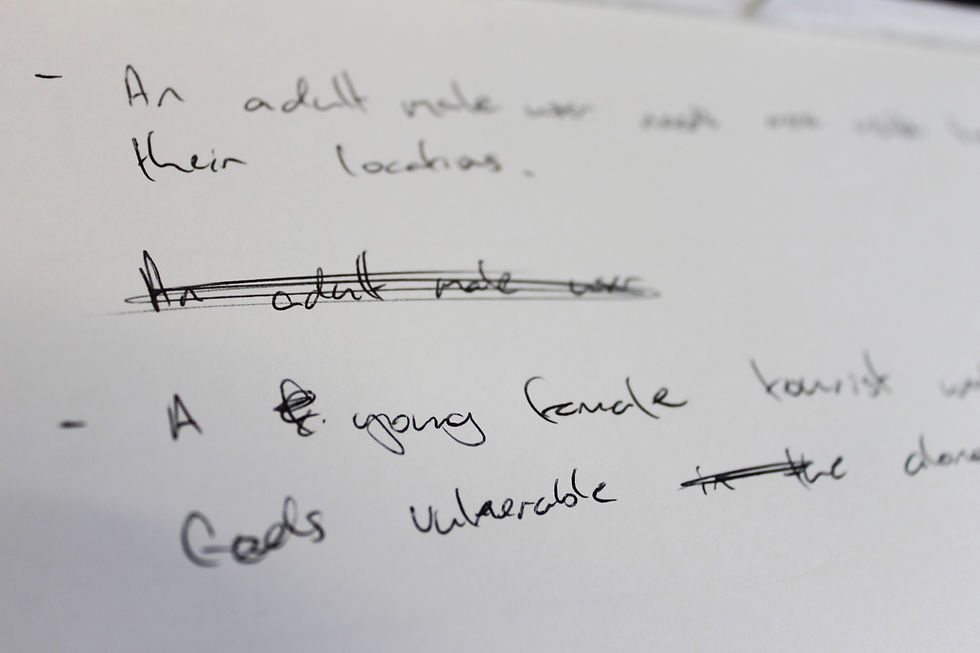 - An adult male user needs
their locations.
An adult male user
- A young female tourist
feels vulnerable in the